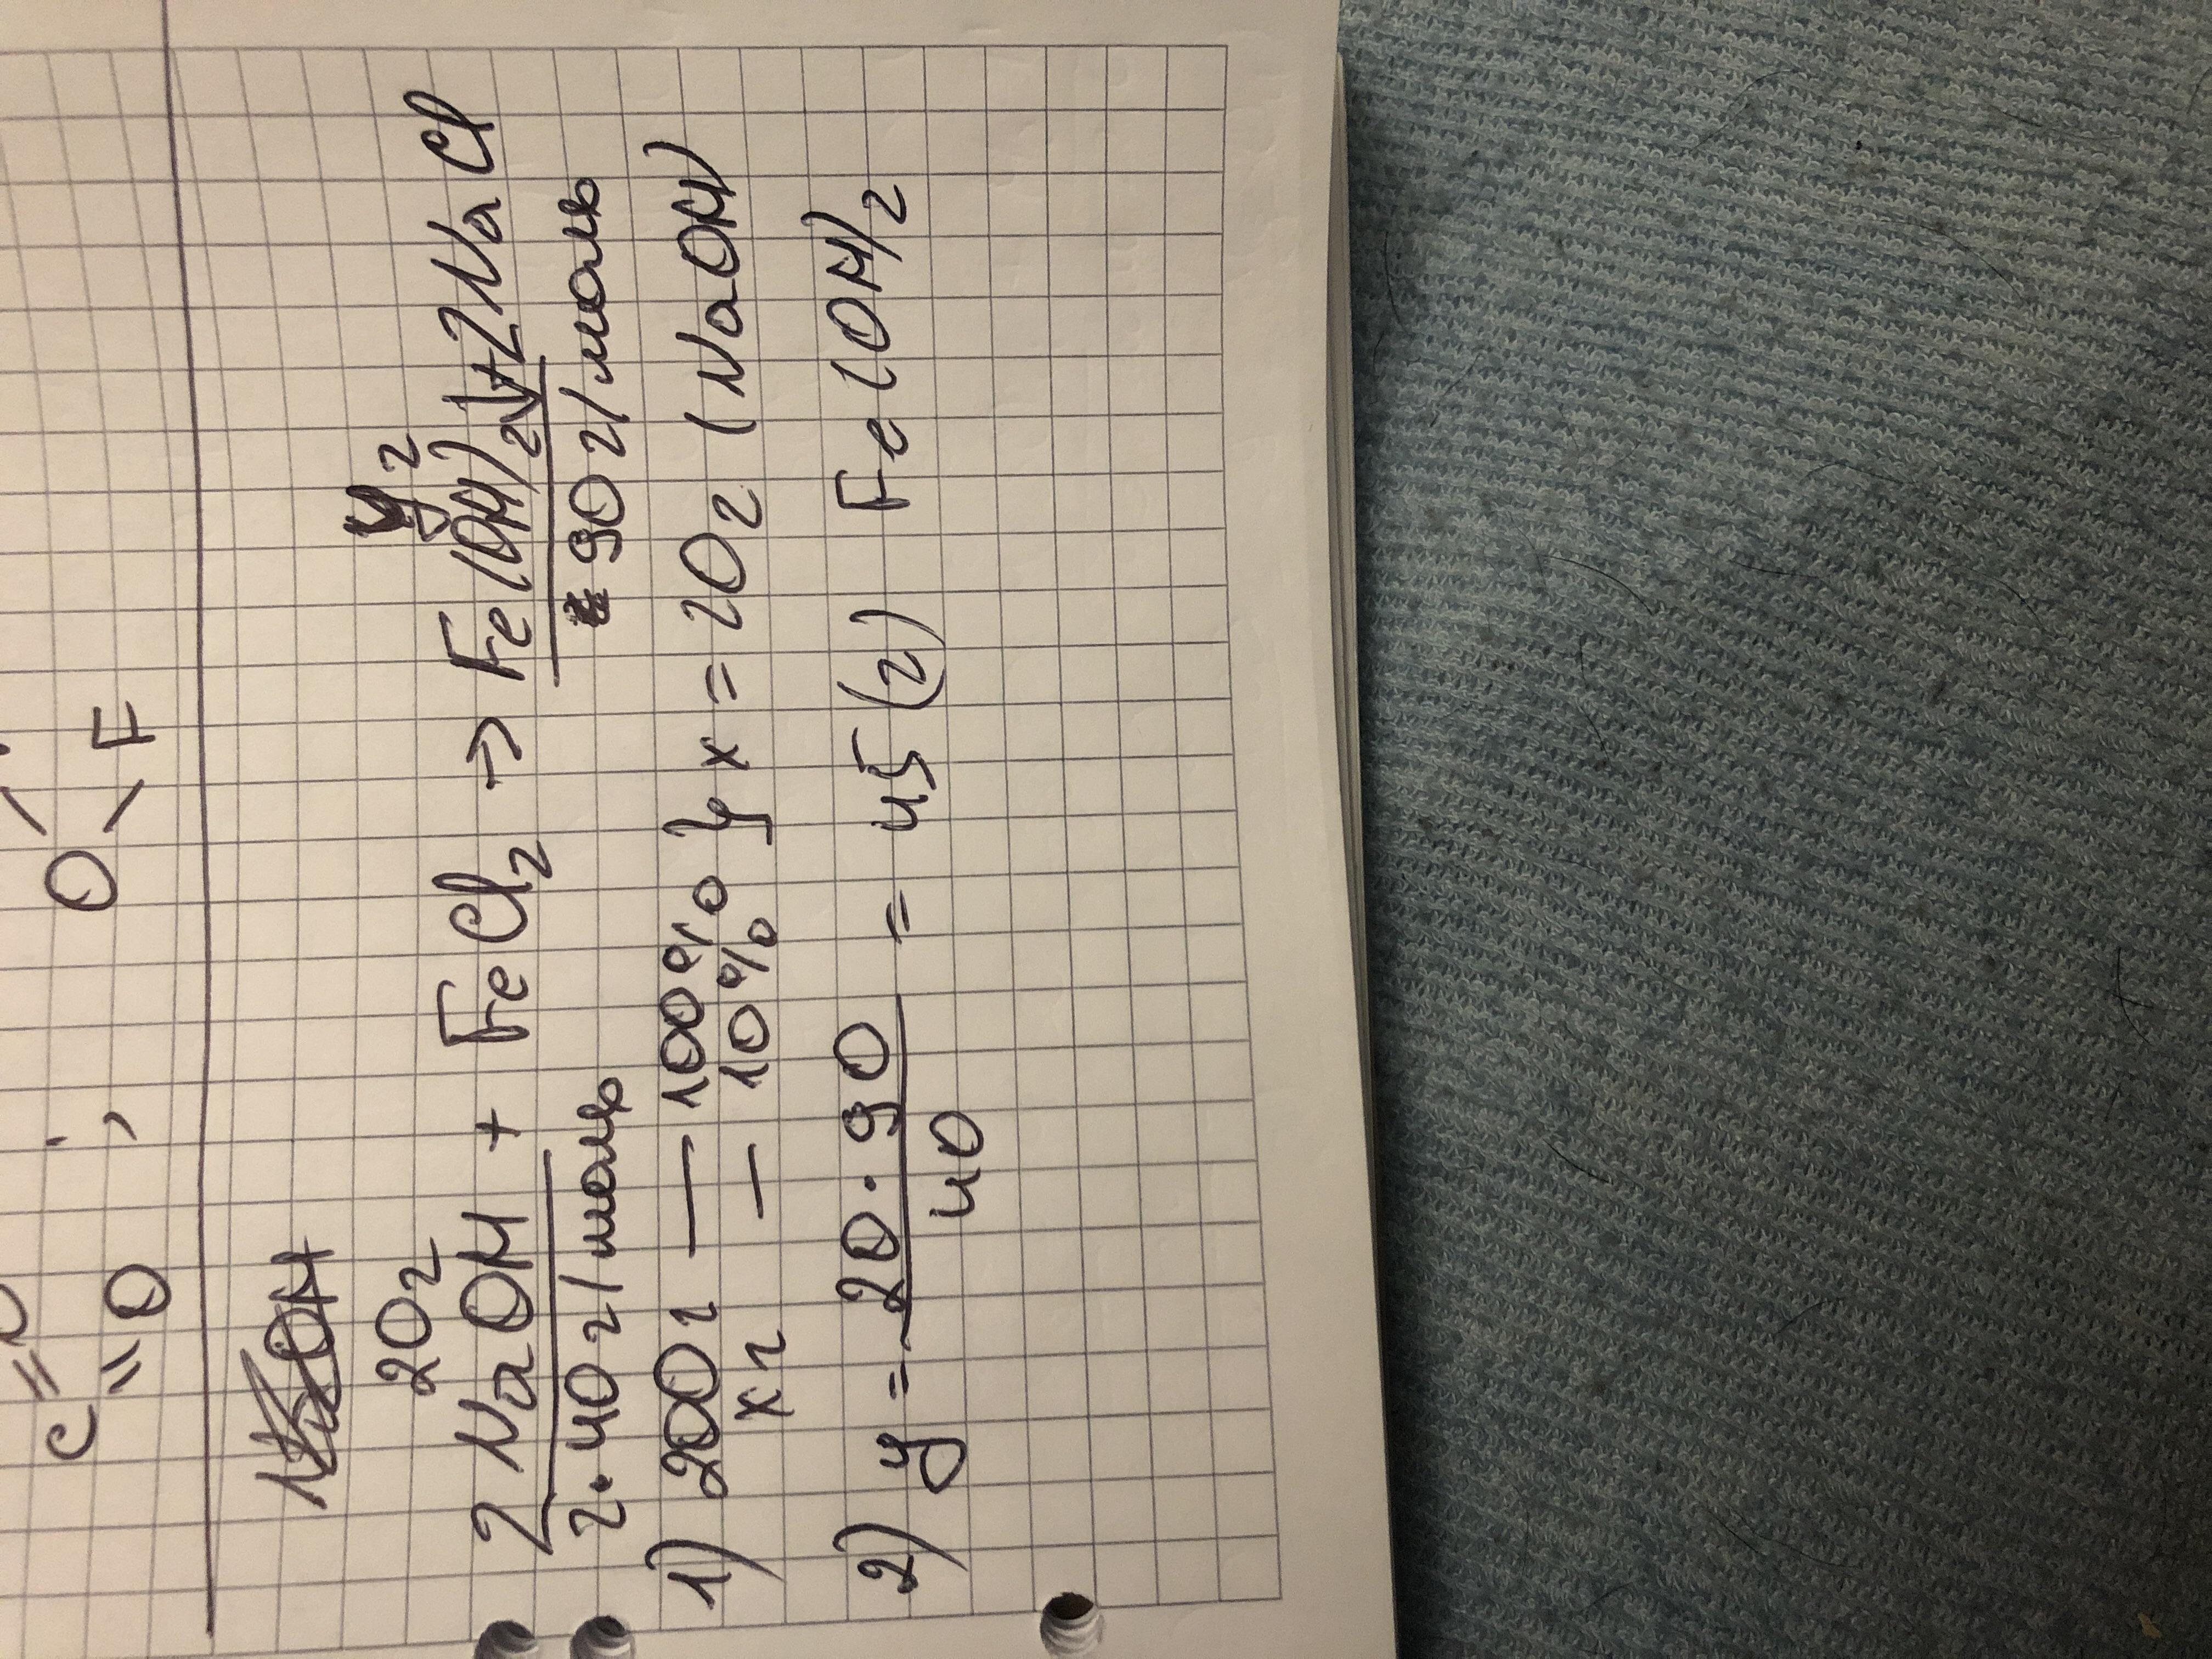 C = O
= O ,
O
F
20г y г
2NaOH + FeCl₂ → Fe(OH)₂↓ + 2NaCl
2·40 г/моль 90 г/моль
1) 200г — 100% } x = 20г (NaOH)
xг — 10%
2) y = 20·90 / 40 = 45 (г) Fe(OH)₂